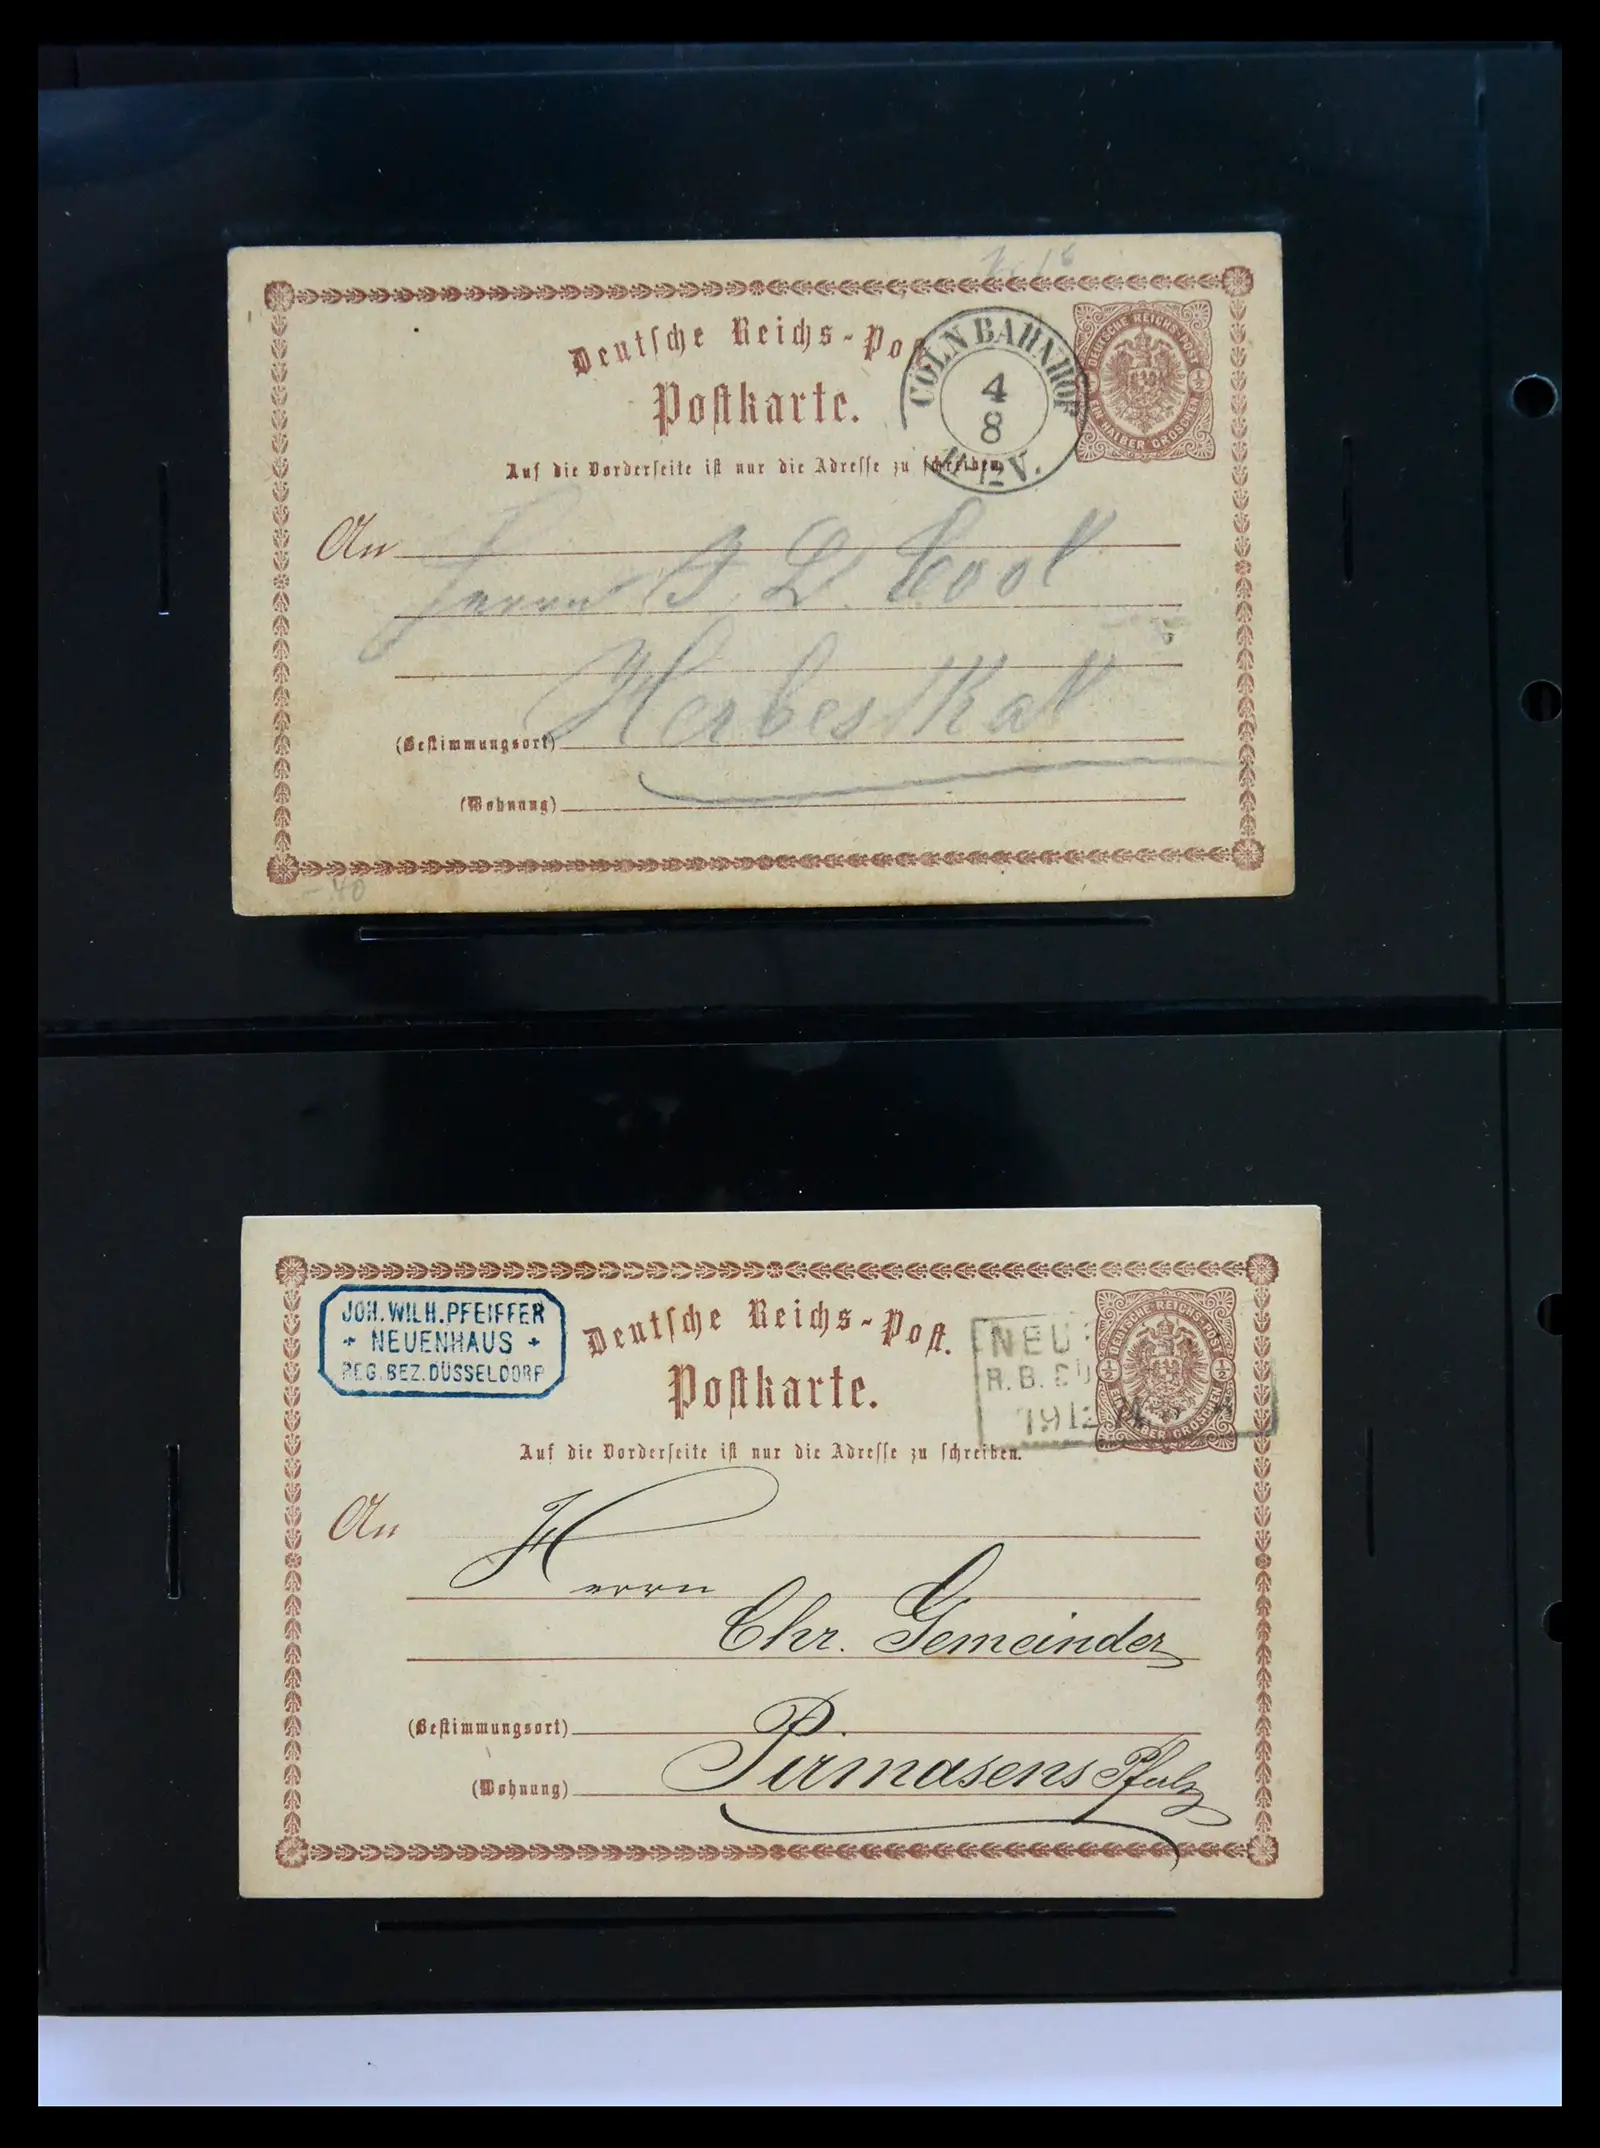 Deutsche Reichs-Pos
Postkarte.
Auf die Vorderseite ist nur die Adresse zu schreiben.
CÖLN BAHNHOF
4
8
11-12 V.
DEUTSCHE REICHS-POST
½
EIN HALBER GROSCHEN
An
Herrn J. D. Cool
Herbesthal
(Bestimmungsort)
(Wohnung)
-.40
JOH. WILH. PFEIFFER
NEUENHAUS
REG. BEZ. DÜSSELDORF
Deutsche Reichs-Post.
Postkarte.
Auf die Vorderseite ist nur die Adresse zu schreiben.
NEU
R. B. DÜ
19 12 74
DEUTSCHE REICHS-POST
½ ½
EIN HALBER GROSCHEN
An
Herrn
Chr. Gemeinder
(Bestimmungsort)
Pirmasens Pfalz
(Wohnung)